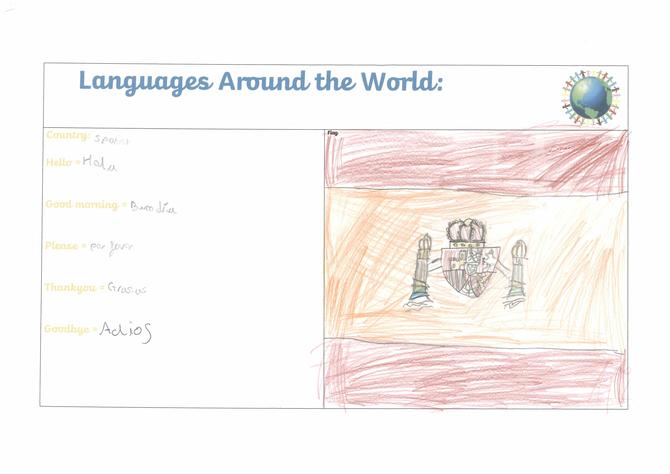 Languages Around the World:
Country: Spanish
Flag
Hello = Hola
Good morning = Buen día
Please = por favor
Thankyou = Grasias
Goodbye = Adios